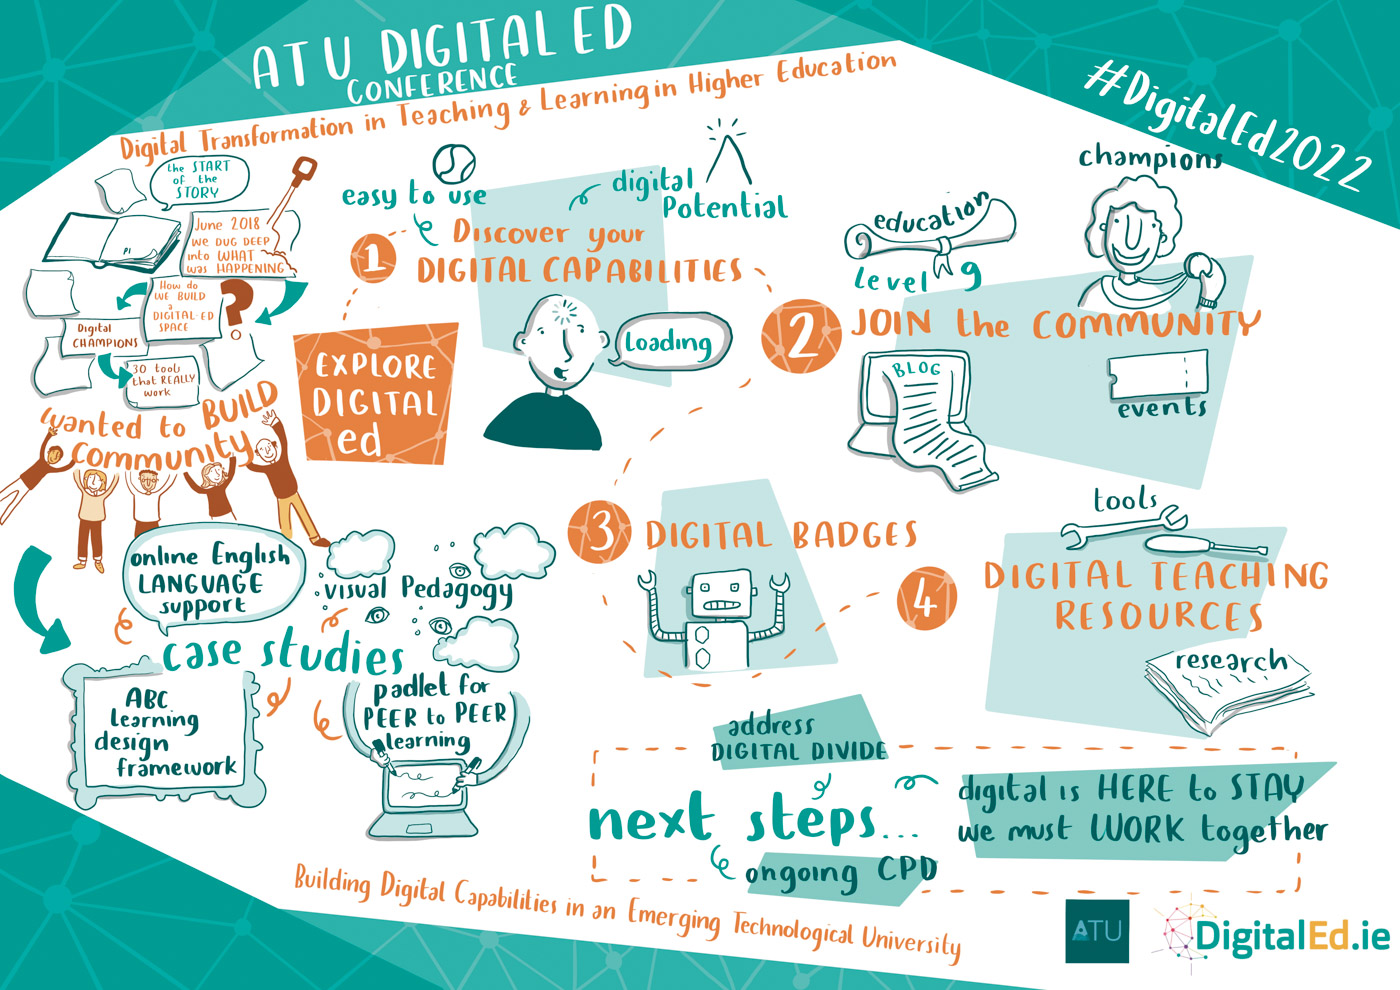 ATU DIGITAL ED
CONFERENCE
Digital Transformation in Teaching & Learning in Higher Education
#DigitalEd2022
the START
of the
STORY
P1
June 2018
WE DUG DEEP
into WHAT
was HAPPENING
How do
WE BUILD
a
DIGITAL-ED
SPACE
?
Digital
CHAMPIONS
30 tools
that REALLY
work
wanted to BUILD
Community
EXPLORE
DIGITAL
ed
1
easy to use
digital
Potential
Discover your
DIGITAL CAPABILITIES
Loading
2
education
Level 9
champions
JOIN the COMMUNITY
BLOG
events
3
DIGITAL BADGES
4
tools
DIGITAL TEACHING
RESOURCES
research
online English
LANGUAGE
support
visual Pedagogy
case studies
ABC
learning
design
framework
padlet for
PEER to PEER
learning
address
DIGITAL DIVIDE
next steps...
ongoing CPD
digital is HERE to STAY
we must WORK together
Building Digital Capabilities in an Emerging Technological University
ATU
DigitalEd.ie